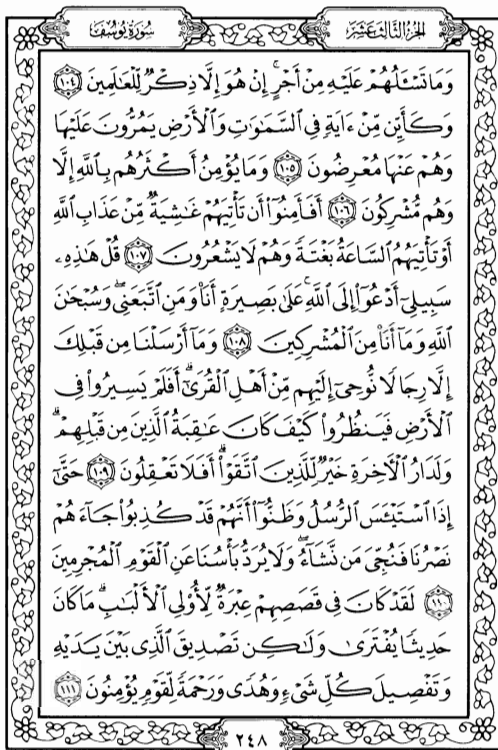 الجزء الثالث عشر
سورة يوسف
وَمَا تَسْـَٔلُهُمْ عَلَيْهِ مِنْ أَجْرٍ ۚ إِنْ هُوَ إِلَّا ذِكْرٌ لِّلْعَٰلَمِينَ ١٠٤
وَكَأَيِّن مِّنْ ءَايَةٍ فِى ٱلسَّمَٰوَٰتِ وَٱلْأَرْضِ يَمُرُّونَ عَلَيْهَا
وَهُمْ عَنْهَا مُعْرِضُونَ ١٠٥ وَمَا يُؤْمِنُ أَكْثَرُهُم بِٱللَّهِ إِلَّا
وَهُم مُّشْرِكُونَ ١٠٦ أَفَأَمِنُوٓا۟ أَن تَأْتِيَهُمْ غَٰشِيَةٌ مِّنْ عَذَابِ ٱللَّهِ
أَوْ تَأْتِيَهُمُ ٱلسَّاعَةُ بَغْتَةً وَهُمْ لَا يَشْعُرُونَ ١٠٧ قُلْ هَٰذِهِۦ
سَبِيلِىٓ أَدْعُوٓا۟ إِلَى ٱللَّهِ ۚ عَلَىٰ بَصِيرَةٍ أَنَا۠ وَمَنِ ٱتَّبَعَنِى ۖ وَسُبْحَٰنَ
ٱللَّهِ وَمَآ أَنَا۠ مِنَ ٱلْمُشْرِكِينَ ١٠٨ وَمَآ أَرْسَلْنَا مِن قَبْلِكَ
إِلَّا رِجَالًا نُّوحِىٓ إِلَيْهِم مِّنْ أَهْلِ ٱلْقُرَىٰٓ ۗ أَفَلَمْ يَسِيرُوا۟ فِى
ٱلْأَرْضِ فَيَنظُرُوا۟ كَيْفَ كَانَ عَٰقِبَةُ ٱلَّذِينَ مِن قَبْلِهِمْ ۗ
وَلَدَارُ ٱلْأَخِرَةِ خَيْرٌ لِّلَّذِينَ ٱتَّقَوْا۟ ۗ أَفَلَا تَعْقِلُونَ ١٠٩ حَتَّىٰٓ
إِذَا ٱسْتَيْـَٔسَ ٱلرُّسُلُ وَظَنُّوٓا۟ أَنَّهُمْ قَدْ كُذِبُوا۟ جَآءَهُمْ
نَصْرُنَا فَنُجِّىَ مَن نَّشَآءُ ۖ وَلَا يُرَدُّ بَأْسُنَا عَنِ ٱلْقَوْمِ ٱلْمُجْرِمِينَ
١١٠ لَقَدْ كَانَ فِى قَصَصِهِمْ عِبْرَةٌ لِّأُو۟لِى ٱلْأَلْبَٰبِ ۗ مَا كَانَ
حَدِيثًا يُفْتَرَىٰ وَلَٰكِن تَصْدِيقَ ٱلَّذِى بَيْنَ يَدَيْهِ
وَتَفْصِيلَ كُلِّ شَىْءٍ وَهُدًى وَرَحْمَةً لِّقَوْمٍ يُؤْمِنُونَ ١١١
٢٤٨